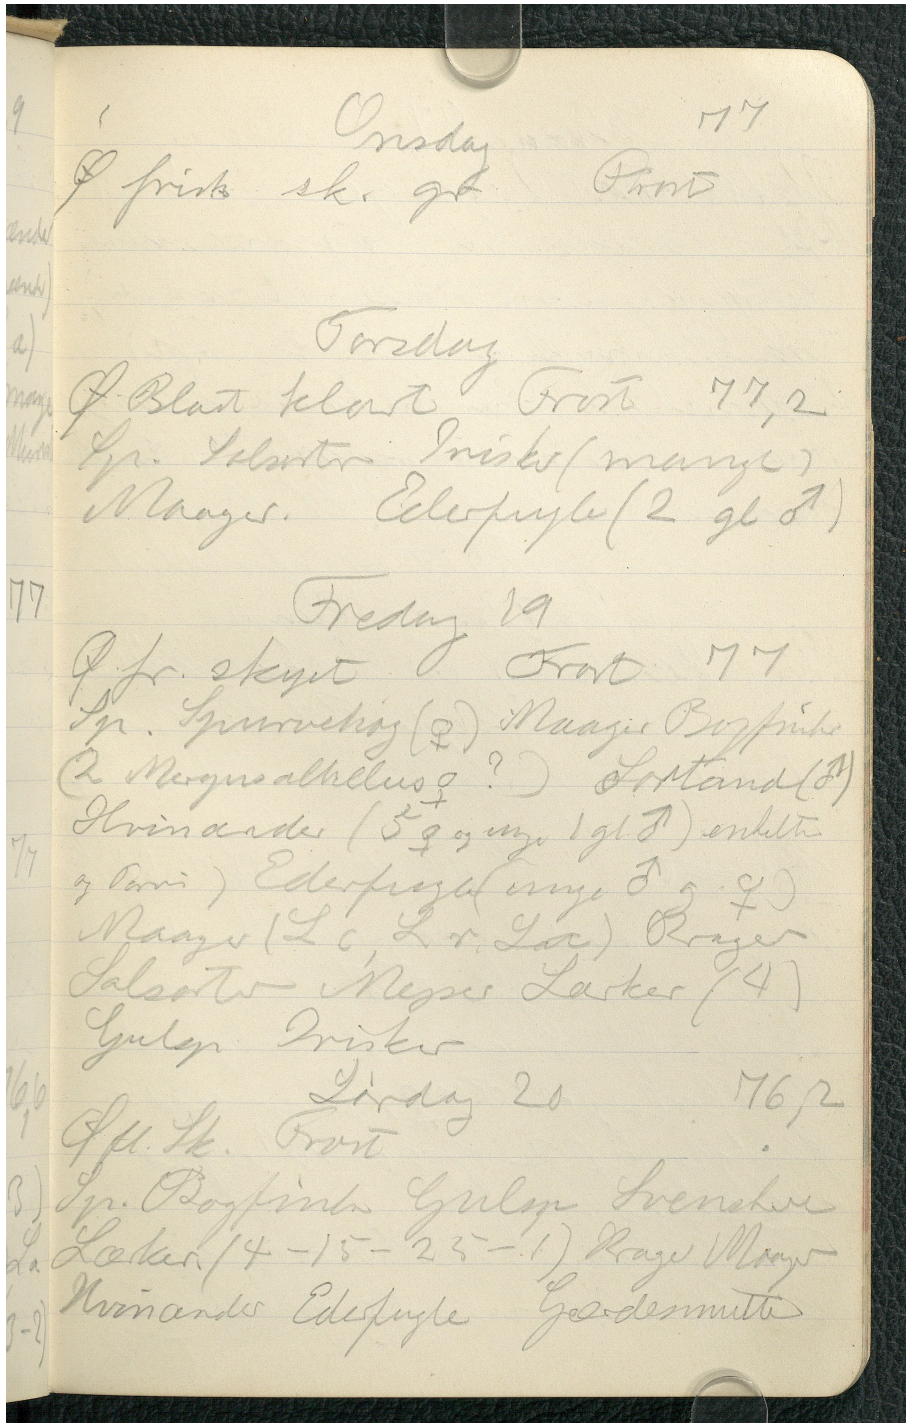 Onsdag 77
Ø frisk sk. gr Frost
Torsdag
Ø. Blæst klart Frost 77,2
Sp. Solsorter Irisker (mange)
Maager. Ederfugle (2 gl ♂)
Fredag 19
Ø. fr. skyet Frost 77
Sp. Spurvehøg (♀) Maager Bogfinke
(2 Mergus albellus ♀ ?) Sortand (♂)
Hvinænder (5 ♀ og unge 1 gl ♂) enkelte
og Parvis) Ederfugle (unge ♂ og ♀)
Maager (L c, L r, La) Krager
Solsorter Mejser Lærker (4)
Gulsp Irisker
Lørdag 20 76,2
Ø fl. Sk. Frost
Sp. Bogfinke Gulsp Svenskere
Lærker. (4 - 15 - 25 - 1) Krager Maager
Hvinænder Ederfugle Gærdesmutte
77